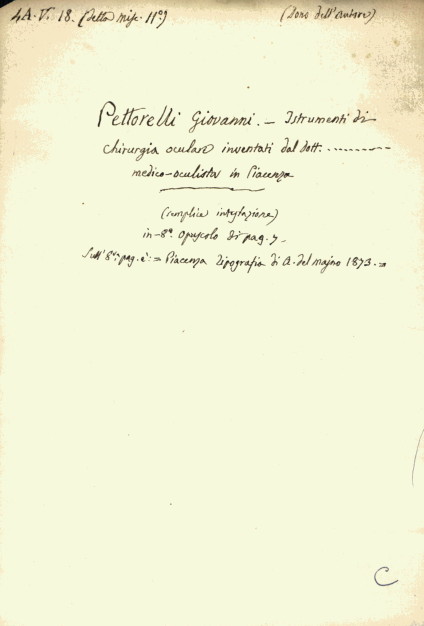 4A.V. 18. (Detta Misc. 11º)
(Dono dell'autore)
Pettorelli Giovanni. — Istrumenti di
chirurgia oculare inventati dal Dott. ...........
medico-oculista in Piacenza
(semplice intestazione)
in-8º. opuscolo di pag. 7_
Sull' 8ª. pag. è: = Piacenza Tipografia di A. del Majno 1873. =
C